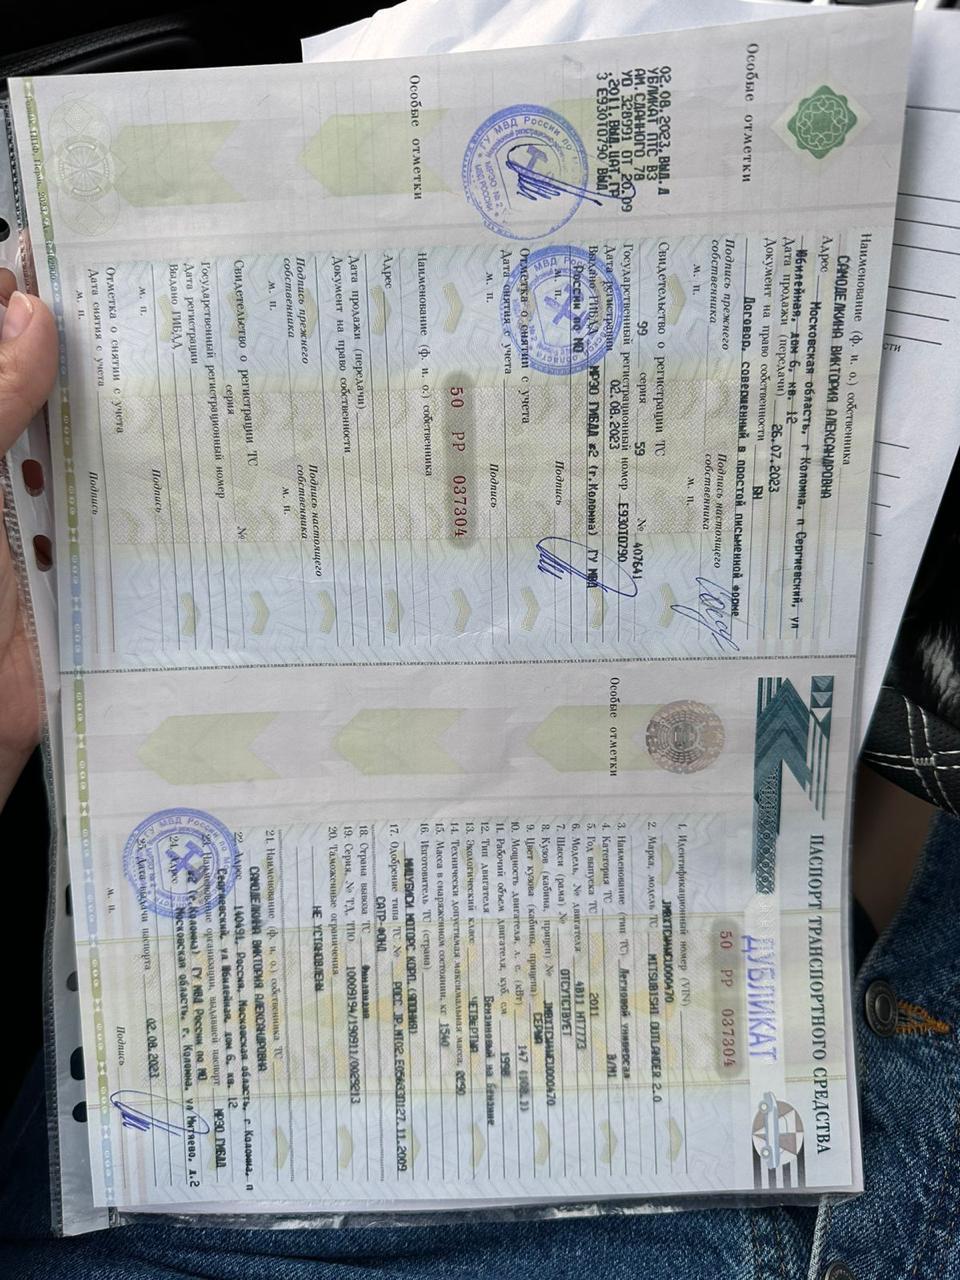 ПАСПОРТ ТРАНСПОРТНОГО СРЕДСТВА
ДУБЛИКАТ
50 РР 037304
1. Идентификационный номер (VIN)
2. Марка, модель ТС MITSUBISHI OUTLANDER 2.0
3. Наименование (тип ТС) Легковой универсал
4. Категория ТС B/M1
5. Год выпуска ТС 2011
6. Модель, № двигателя 4B11 HT7773
7. Шасси (рама) № ОТСУТСТВУЕТ
8. Кузов (кабина, прицеп) №
9. Цвет кузова (кабины, прицепа) СЕРЫЙ
10. Мощность двигателя, л. с. (кВт) 147 (108.1)
11. Рабочий объем двигателя, куб. см 1998
12. Тип двигателя Бензиновый на бензине
13. Экологический класс ЧЕТВЕРТЫЙ
14. Технически допустимая максимальная масса, кг
15. Масса в снаряженном состоянии, кг 1540
16. Изготовитель ТС (страна)
МИЦУБИСИ МОТОРС КОРП. (ЯПОНИЯ)
17. Одобрение типа ТС №
САТР-ФОНД
18. Страна вывоза ТС Финляндия
19. Серия, № ТД, ТПО 10009194/190911/0029213
20. Таможенные ограничения
НЕ УСТАНОВЛЕНЫ
21. Наименование (ф. и. о.) собственника ТС
САМОДЕЛКИНА ВИКТОРИЯ АЛЕКСАНДРОВНА
22. Адрес 140491, Россия, Московская область, г. Коломна, п
Сергиевский, ул Юбилейная, дом 6, кв. 12
23. Наименование организации, выдавшей паспорт МРЭО ГИБДД
№2 (г.Коломна) ГУ МВД России по МО
24. Адрес Московская область, г. Коломна, ул Митяево, д.2
25. Дата выдачи паспорта 02.08.2023
М. П.
Подпись
Особые отметки
Особые отметки
02.08.2023, ВЫД. Д
УБЛИКАТ ПТС ВЗ
АМ. СДАННОГО 78
УО 328991 ОТ 20.09
.2011, ВЫД. ЦАТ, ГР
З Е930ТО790 ВЫД.
Особые отметки
Наименование (ф. и. о.) собственника
САМОДЕЛКИНА ВИКТОРИЯ АЛЕКСАНДРОВНА
Адрес Московская область, г Коломна, п Сергиевский, ул
Юбилейная, дом 6, кв. 12
Дата продажи (передачи) 26.07.2023
Документ на право собственности БН
Договор, совершенный в простой письменной форме
Подпись прежнего собственника
Подпись настоящего собственника
М. П.
М. П.
Свидетельство о регистрации ТС
99 серия 59 № 407641
Государственный регистрационный номер Е930ТО790
Дата регистрации 02.08.2023
Выдано ГИБДД МРЭО ГИБДД №2 (г.Коломна) ГУ МВД
России по МО
М. П.
Подпись
Отметка о снятии с учета
Дата снятия с учета
М. П.
Подпись
50 РР 037304
Наименование (ф. и. о.) собственника
Адрес
Дата продажи (передачи)
Документ на право собственности
Подпись прежнего собственника
Подпись настоящего собственника
М. П.
М. П.
Свидетельство о регистрации ТС
серия №
Государственный регистрационный номер
Дата регистрации
Выдано ГИБДД
М. П.
Подпись
Отметка о снятии с учета
Дата снятия с учета
М. П.
Подпись